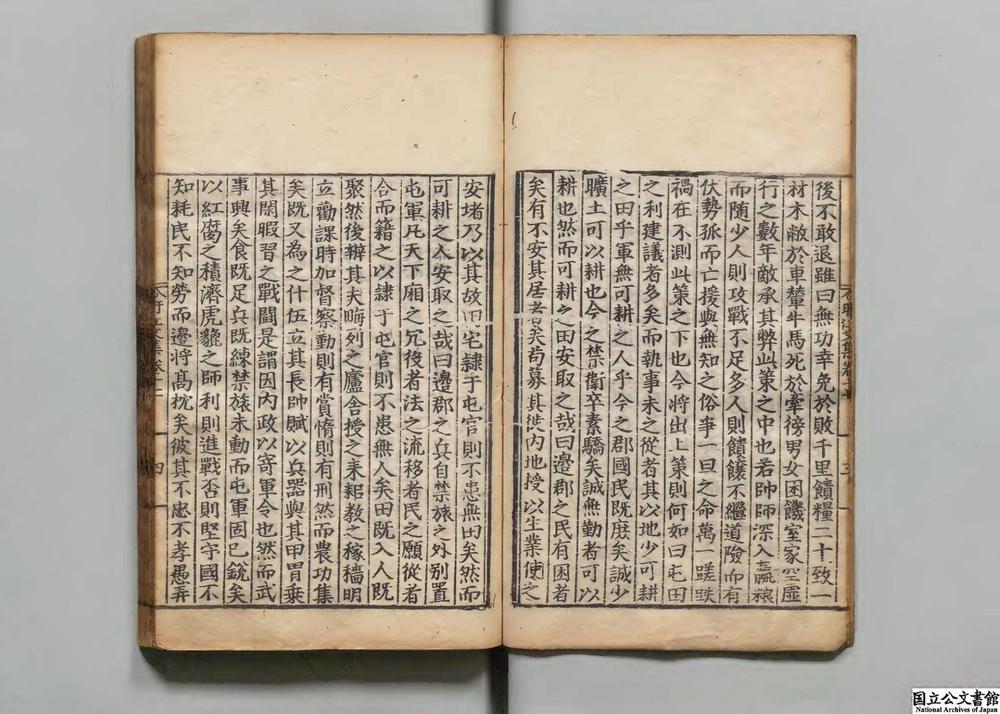 後不敢退雖曰無功幸免於敗千里饋糧二十致一
材木敝於車輦牛馬死於牽徬男女困饑室家空虛
行之數年敵承其弊此策之中也若帥師深入羸糧
而隨少人則攻戰不足多人則饋饟不繼道險而有
伏勢孤而亡援與無知之俗爭一旦之命萬一蹉跌
禍在不測此策之下也今將出上策則何如曰屯田
之利建議者多矣而執事未之從者其以地少可耕
之田乎軍無可耕之人乎今之郡國民既庶矣誠少
曠土可以耕也今之禁衛卒素驕矣誠無勤者可以
耕也然而可耕之田安取之哉曰邊郡之民有困者
矣有不安其居者矣苟募其徙內地授以生業使之
安堵乃以其故田宅隸于屯官則不患無田矣然而
可耕之人安取之哉曰邊郡之兵自禁旅之外別置
屯軍凡天下廂之冗役者法之流移者民之願從者
合而籍之以隸于屯官則不患無人矣田既入人既
聚然後辨其夫畮列之廬舍授之耒耜教之稼穡明
立勸課時加督察勤則有賞惰則有刑然而農功集
矣既又為之什伍立其長帥賦以兵器與其甲冑乗
其閒暇習之戰鬬是謂因內政以寄軍令也然而武
事興矣食既足兵既練禁旅未動而屯軍固已銳矣
以紅腐之積濟虎貔之師利則進戰否則堅守國不
知耗民不知勞而邊將髙枕矣彼其不忠不孝愚弄
三
四
国立公文書館
National Archives of Japan